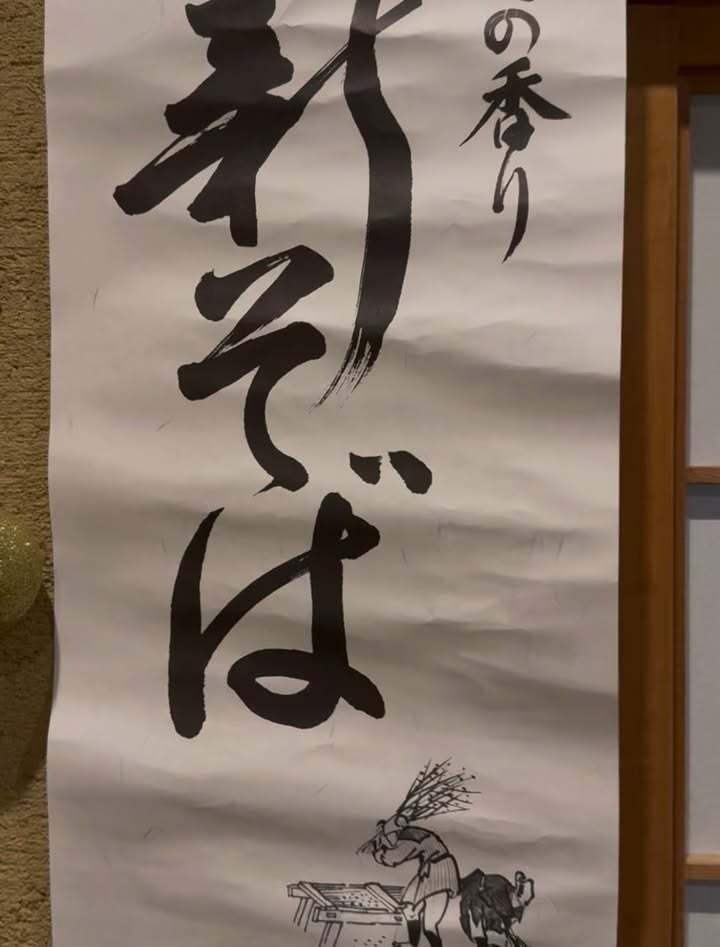 の香り
新そば